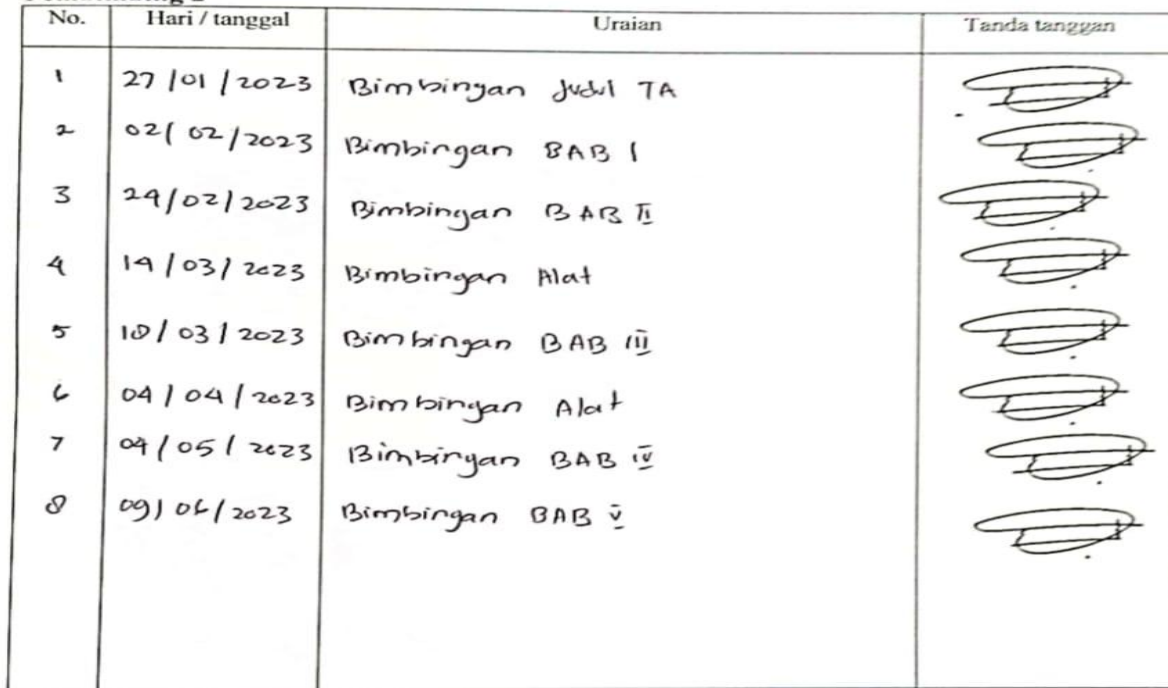 No. Hari / tanggal Uraian Tanda tanggan
1 27/01/2023 Bimbingan Judul TA
2 02/02/2023 Bimbingan BAB I
3 24/02/2023 Bimbingan BAB II
4 14/03/2023 Bimbingan Alat
5 18/03/2023 Bimbingan BAB III
6 04/04/2023 Bimbingan Alat
7 04/05/2023 Bimbingan BAB IV
8 09/06/2023 Bimbingan BAB V